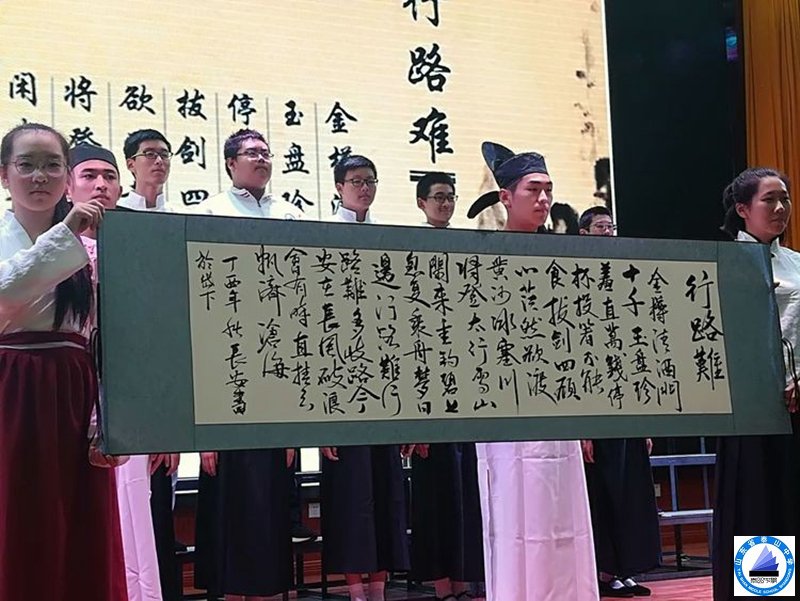 行路难
金樽
玉盘珍
停
拔剑四
欲
将登
闲
行路難
金樽清酒斗
十千玉盤珍
羞直萬錢停
杯投箸不能
食拔劍四顧
心茫然欲渡
黄河冰塞川
将登太行雪山
閑来垂釣碧上
忽复乘舟夢日
邊行路難行
路難多岐路今
安在長風破浪
會有時直挂云
帆濟滄海
丁酉年秋長安書
於岱下
山东省泰山中学
TAI SHAN MIDDLE SCHOOL SHANDONG